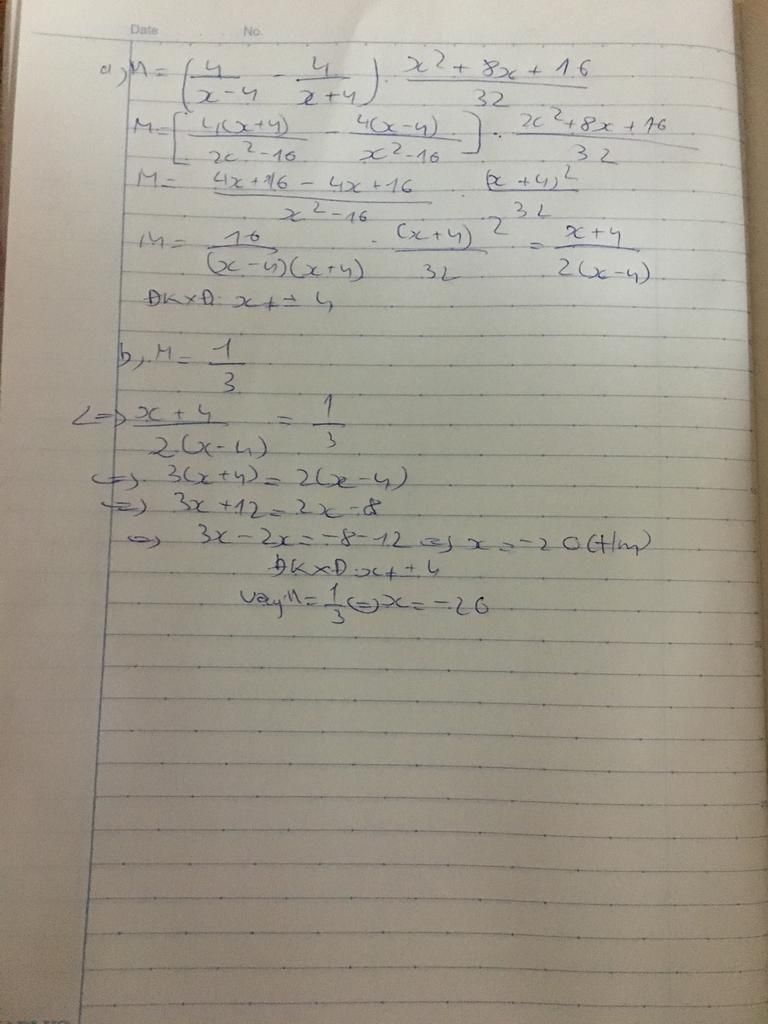 Date No.
a, M = (4/(x-4) - 4/(x+4)) . (x² + 8x + 16)/32
M = [4(x+4)/(x²-16) - 4(x-4)/(x²-16)] . (x²+8x+16)/32
M = (4x+16-4x+16)/(x²-16) . (x+4)²/32
M = 16/((x-4)(x+4)) . (x+4)²/32 = (x+4)/(2(x-4))
ĐKXĐ: x ≠ ± 4
b, M = 1/3
<=> (x+4)/(2(x-4)) = 1/3
<=> 3(x+4) = 2(x-4)
<=> 3x+12 = 2x-8
<=> 3x-2x = -8-12 <=> x = -20 (t/m)
ĐKXĐ: x ≠ ± 4
Vậy M = 1/3 <=> x = -20